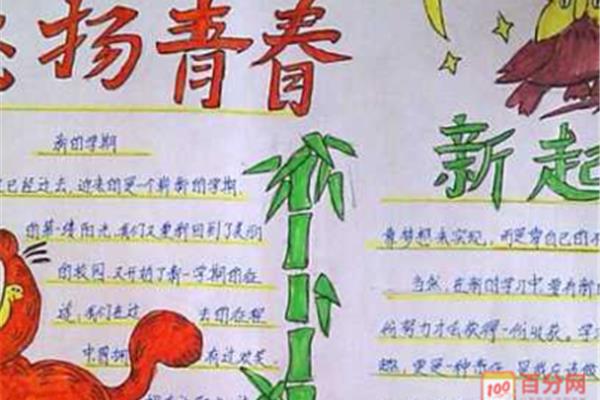 扬青春
新的学期
已经过去,迎来的是一个崭新的学期.
的第一缕阳光,我们又重新回到了美丽
的校园,又开始了新一学期的征
途,我们在过 去的征程
中曾拥 有过欢笑
新起
靠梦想来实现,而是靠自己的不
当然,在新的学习中,要有新
份努力才会获得一份收获。学
趣,更是一种责任
百分网
100